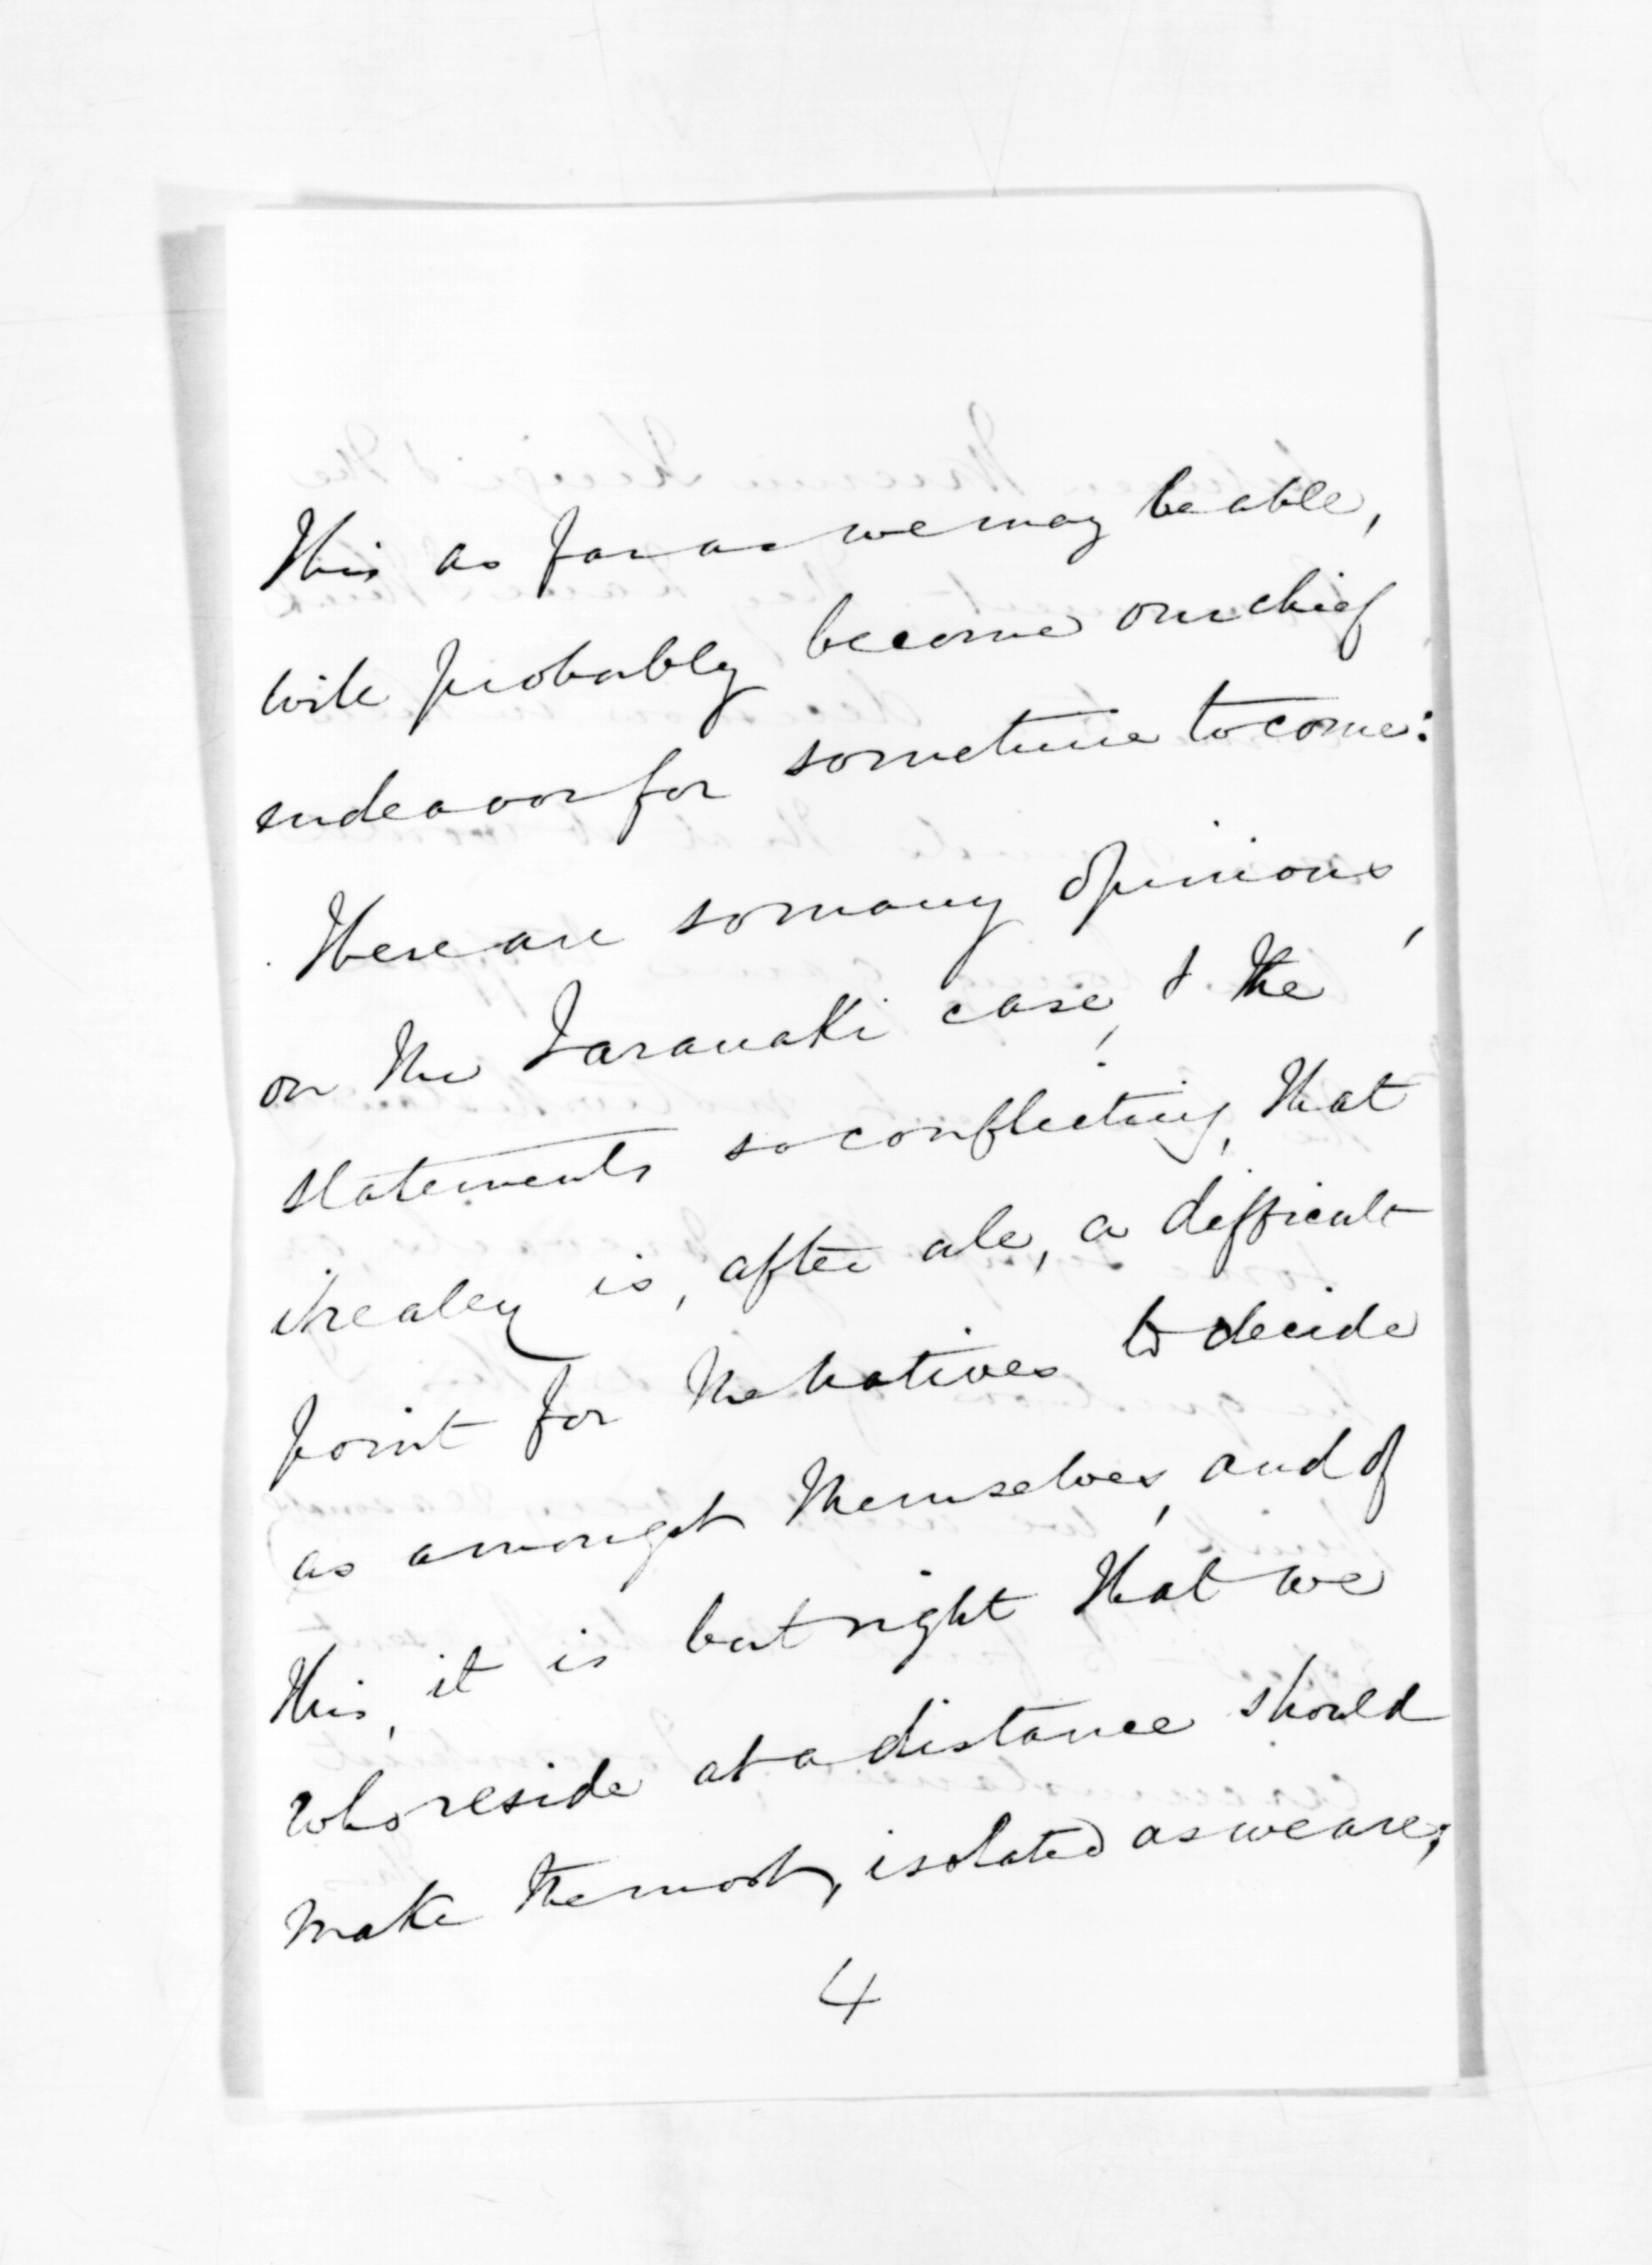 This as far as we may be able,
will probably become our chief
endeavor for sometime to come:
There are so many opinions,
on the Taranaki case, & the
statements so conflicting, that
it really is, after all, a difficult
point for the Natives to decide
as amongst themselves, and of
this, it is but right that we
who reside at a distance should
make the most, isolated as we are;
4